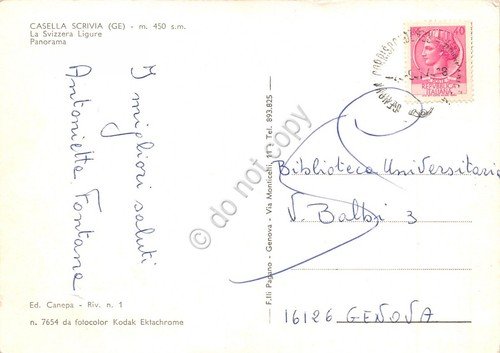 CASELLA SCRIVIA (GE) - m. 450 s.m.
La Svizzera Ligure
Panorama
I migliori saluti
Antonietta Fontana
Ed. Canepa - Riv. n. 1
n. 7654 da fotocolor Kodak Ektachrome
F.lli Pagano - Genova - Via Monticelli, 11 r - Tel. 893.825
40
Biblioteca Universitaria
V. Balbi 3
16126 GENOVA
© do not copy